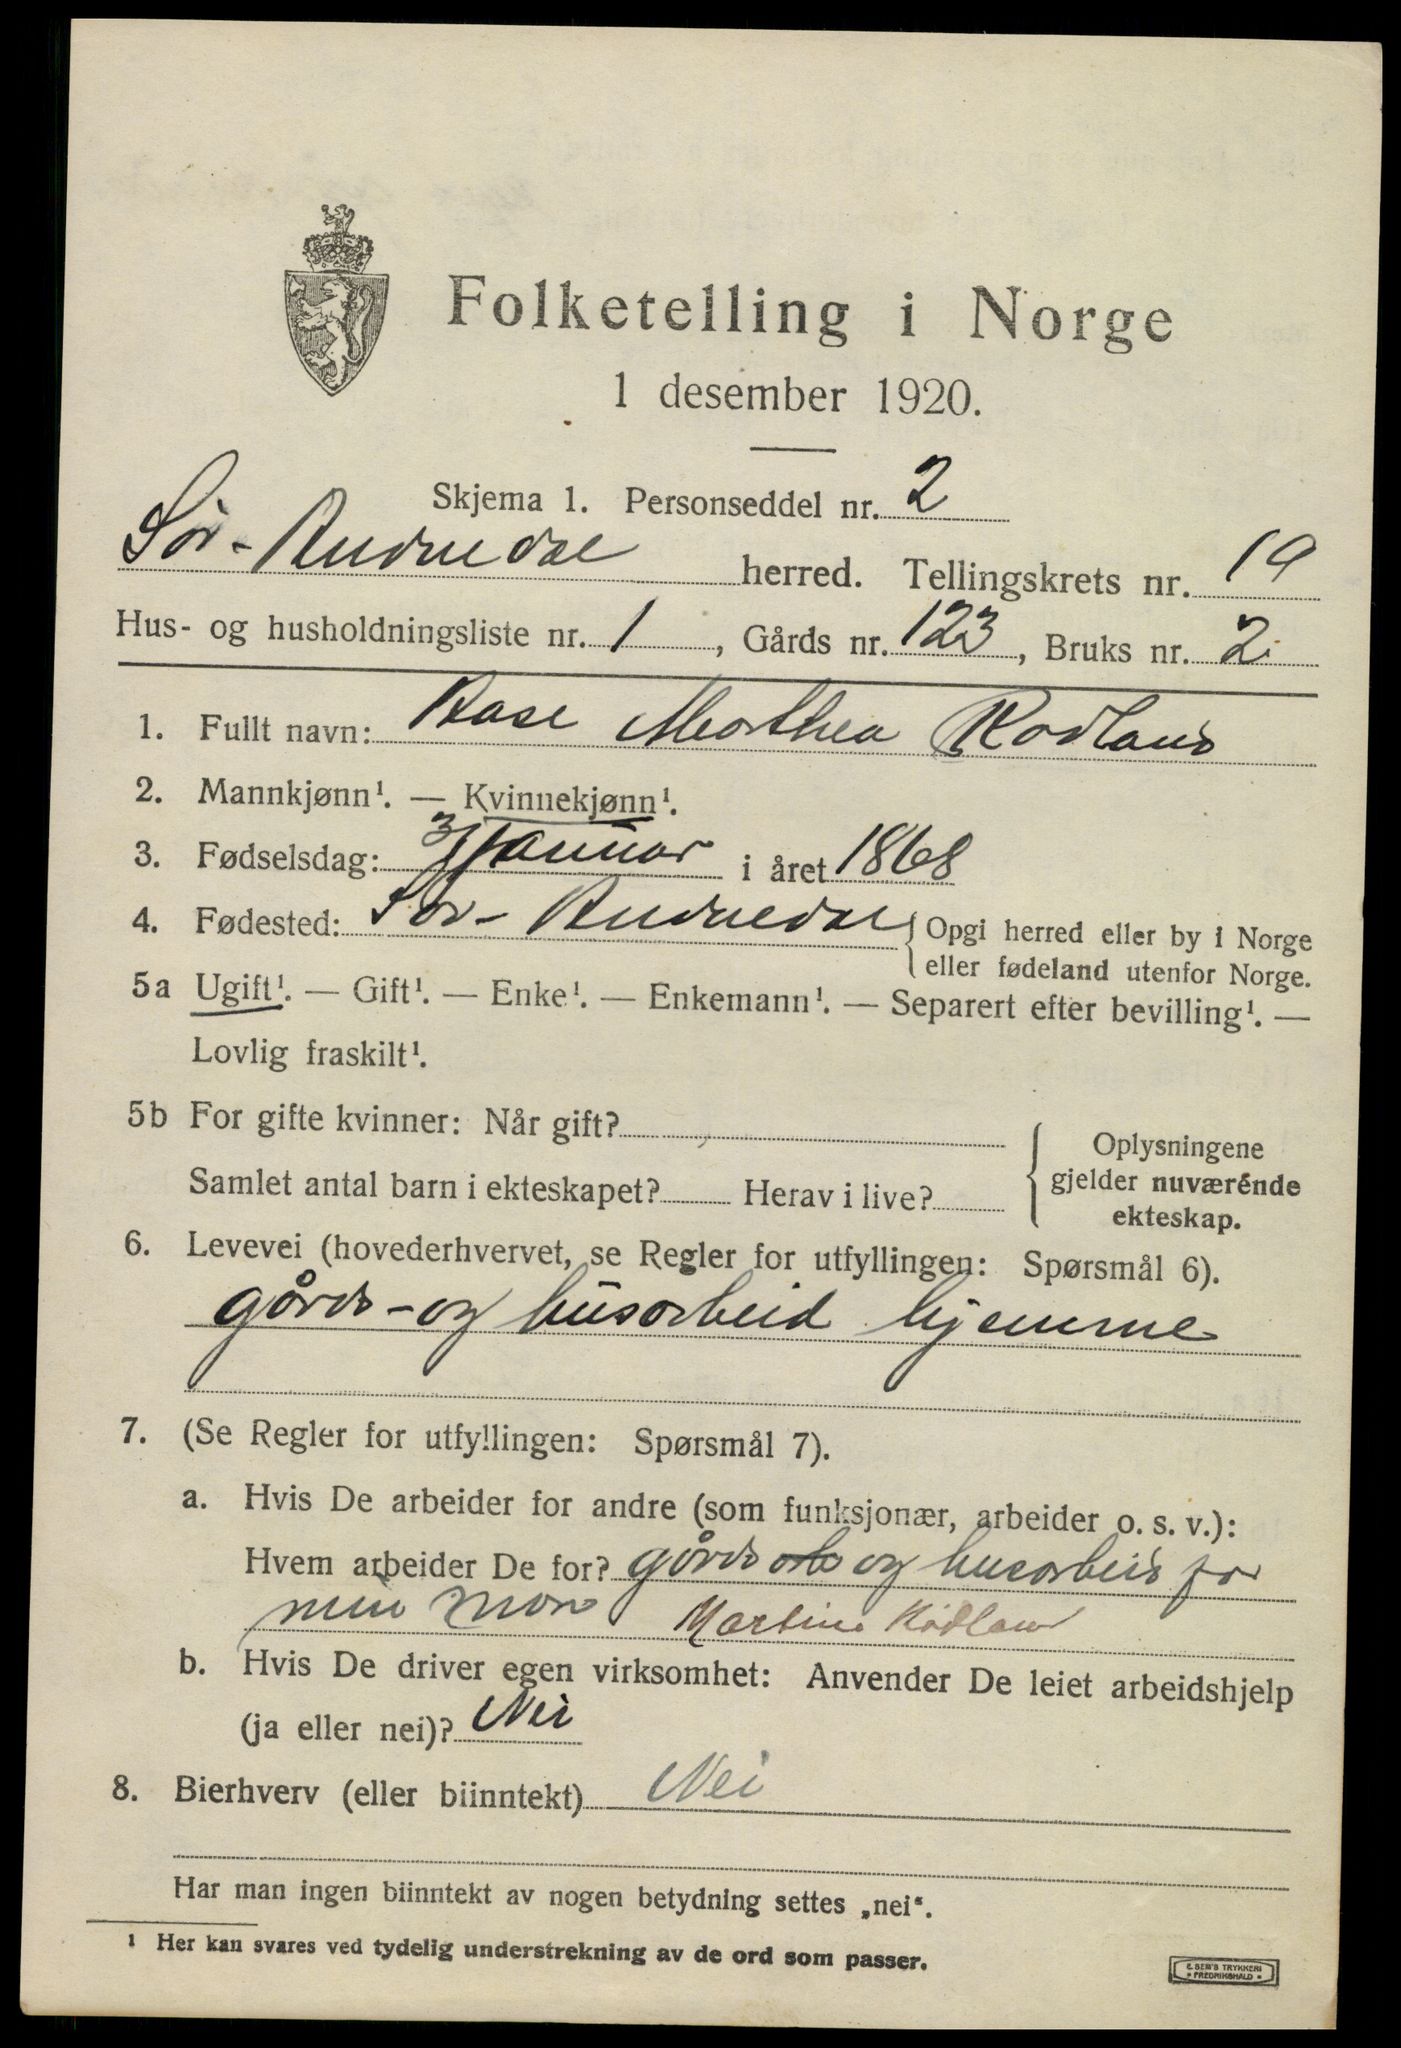 Folketelling i Norge
1 desember 1920.
Skjema 1. Personseddel nr. 2
Sør-Audnedal herred. Tellingskrets nr. 19
Hus- og husholdningsliste nr. 1, Gårds nr. 123, Bruks nr. 2
1. Fullt navn: Aase Marthea Rødland
2. Mannkjønn¹. — Kvinnekjønn¹.
3. Fødselsdag: 3/januar i året 1868
4. Fødested: Sør-Audnedal { Opgi herred eller by i Norge
eller fødeland utenfor Norge.
5a Ugift¹. — Gift¹. — Enke¹. — Enkemann¹. — Separert efter bevilling¹. —
Lovlig fraskilt¹.
5b For gifte kvinner: Når gift?
Samlet antal barn i ekteskapet? Herav i live?
{ Oplysningene
gjelder nuværénde
ekteskap.
6. Levevei (hovederhvervet, se Regler for utfyllingen: Spørsmål 6).
gårds-og husarbeid hjemme
7. (Se Regler for utfyllingen: Spørsmål 7).
a. Hvis De arbeider for andre (som funksjonær, arbeider o. s. v.):
Hvem arbeider De for? gårds og husarbeid for
min mor Martine Rødland
b. Hvis De driver egen virksomhet: Anvender De leiet arbeidshjelp
(ja eller nei)? Nei
8. Bierhverv (eller biinntekt) Nei
Har man ingen biinntekt av nogen betydning settes „nei“.
¹ Her kan svares ved tydelig understrekning av de ord som passer.
E. SEM'S TRYKKERI
* FREDRIKSHALD *